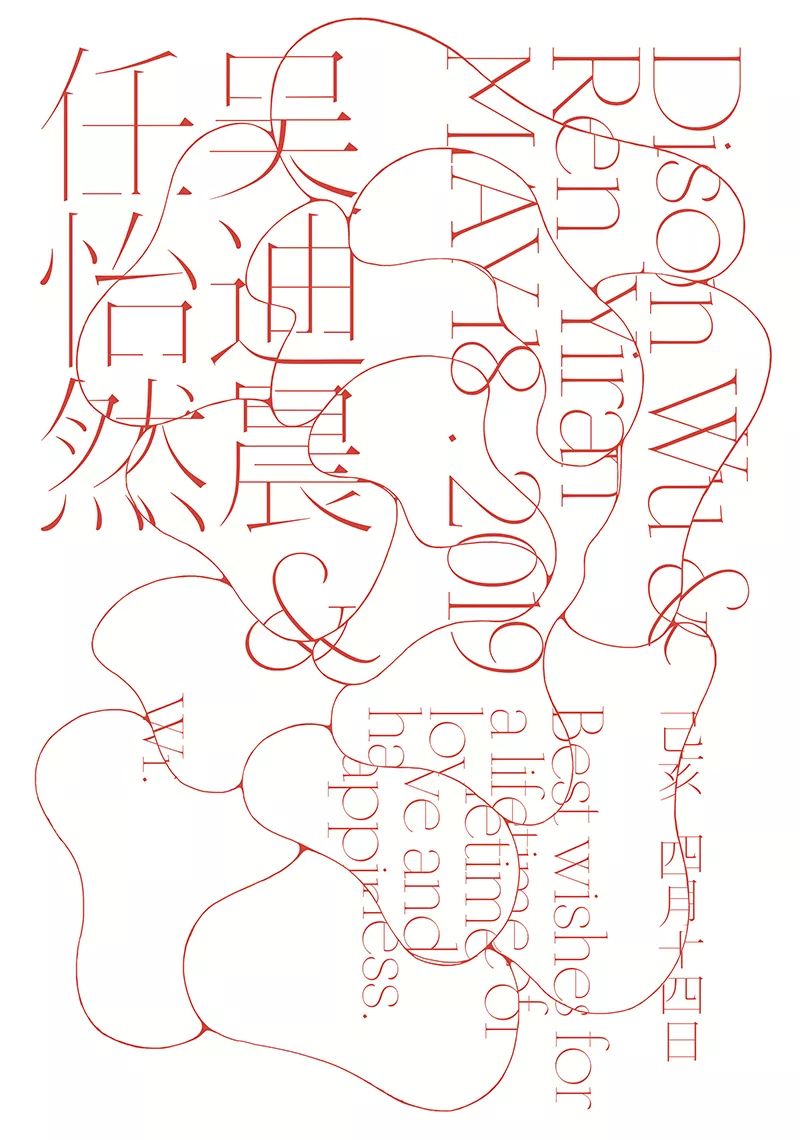 Dison Wu &
Ren Yiran
MAY 18 . 2019
吴迪晨
&
任怡然
己亥 四月十四日
Best wishes for
a lifetime of
love and
happiness.